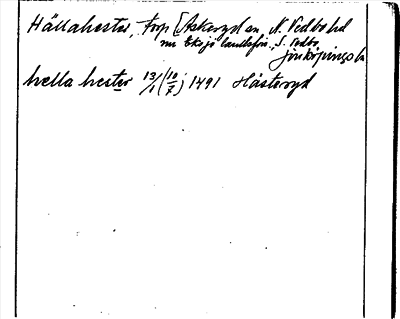 Hällahester, torp [Askeryd sn, N. Vedbo hd
nu Eksjö landsförs., S. Vedbo,
Jönköpings l.
hella hester 13/1 (10/7) 1491 Hästeryd